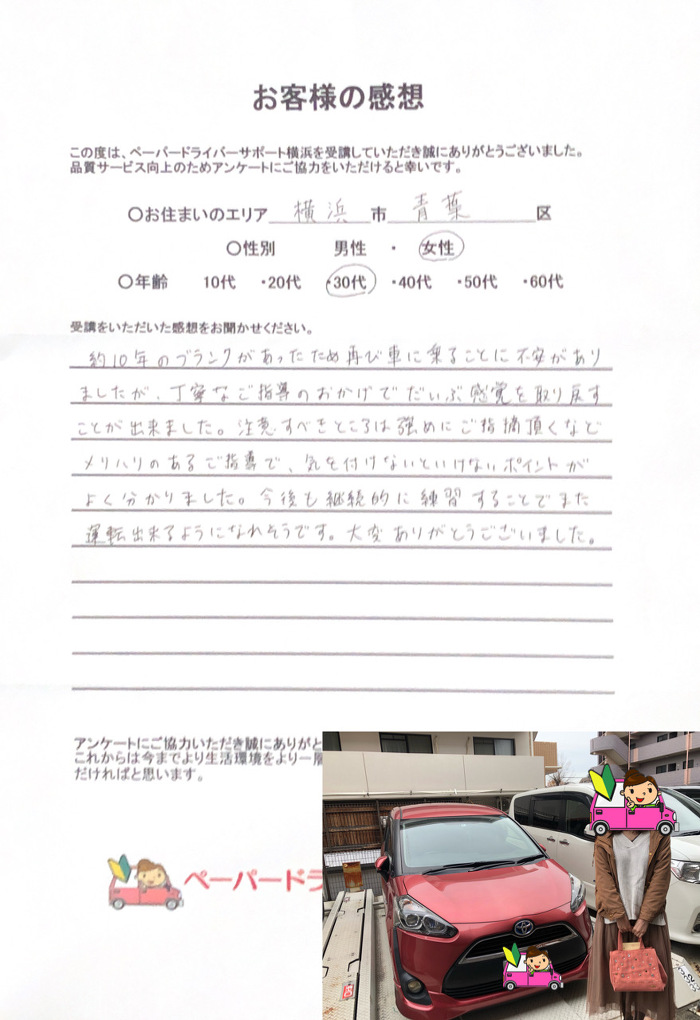 お客様の感想
この度は、ペーパードライバーサポート横浜を受講していただき誠にありがとうございました。
品質サービス向上のためアンケートにご協力をいただけると幸いです。
○お住まいのエリア 横浜 市 青葉 区
○性別 男性 ・ 女性
○年齢 10代 ・20代 ・30代 ・40代 ・50代 ・60代
受講をいただいた感想をお聞かせください。
約10年のブランクがあったため再び車に乗ることに不安があり
ましたが、丁寧なご指導のおかげでだいぶ感覚を取り戻す
ことが出来ました。注意すべきところは強めにご指摘頂くなど
メリハリのあるご指導で、気を付けないといけないポイントが
よく分かりました。今後も継続的に練習することでまた
運転出来るようになれそうです。大変ありがとうございました。
アンケートにご協力いただき誠にありがと
これからは今までより生活環境をより一層
だければと思います。
ペーパードラ